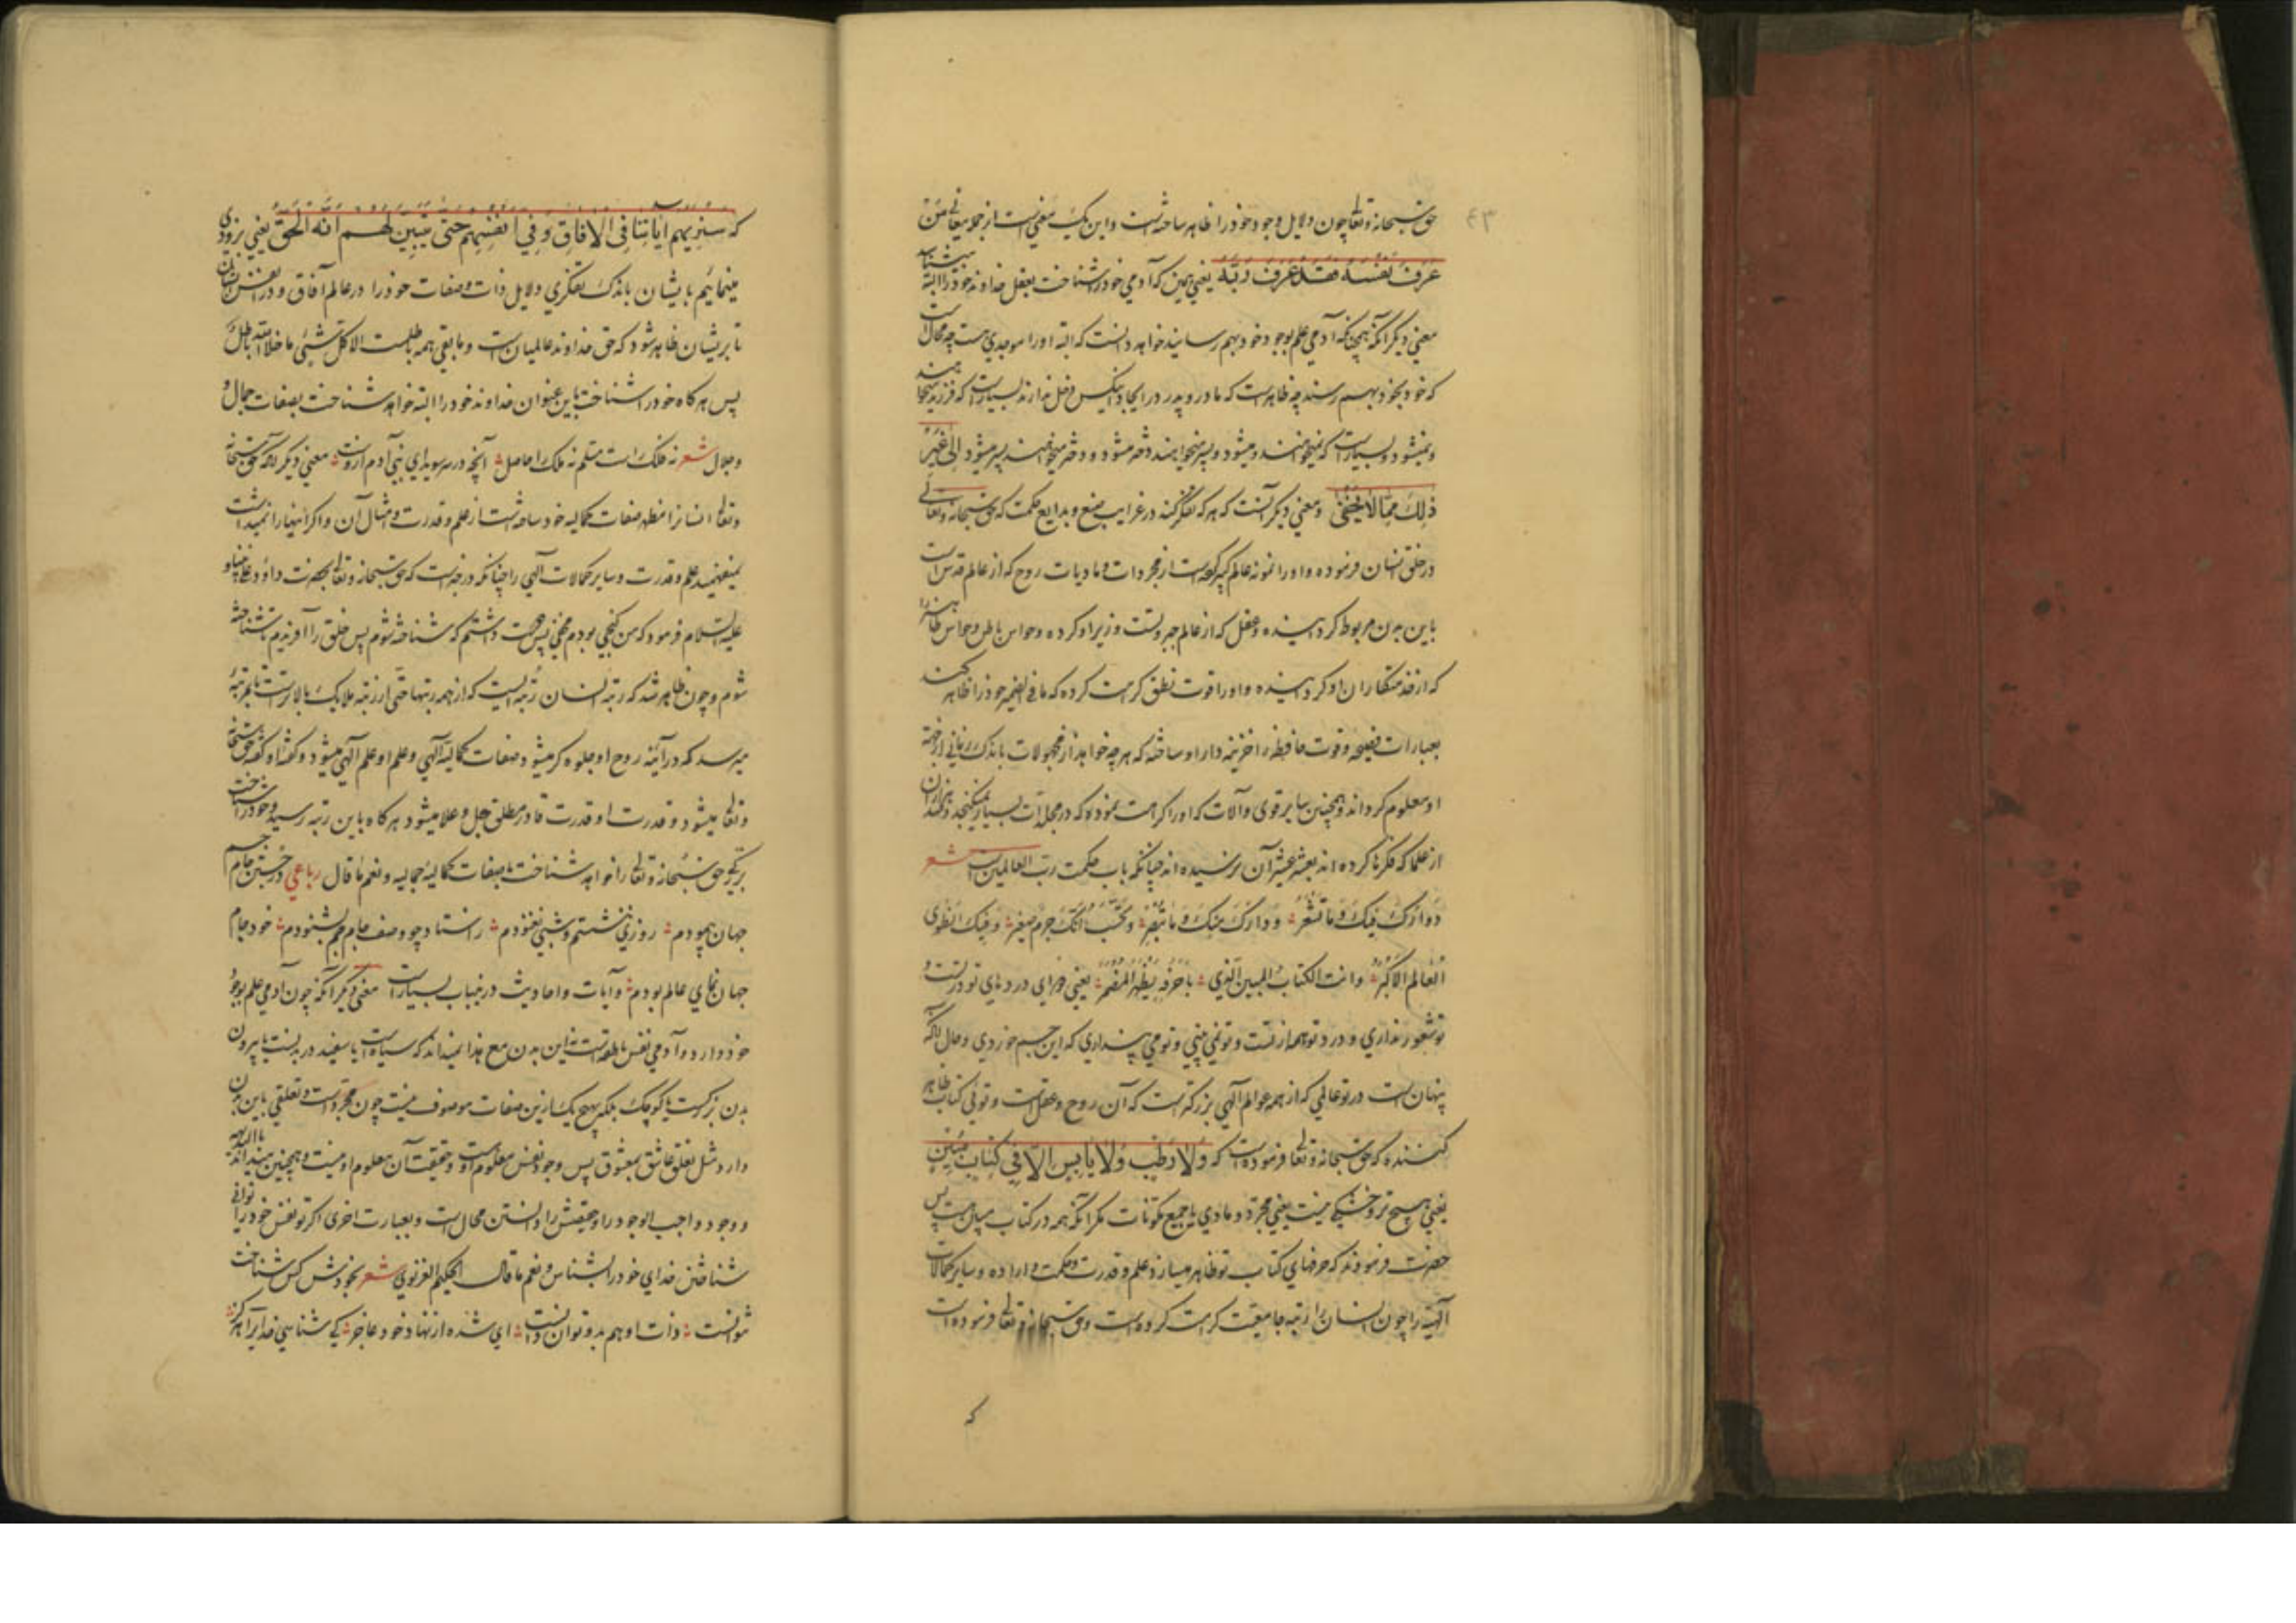 ٤٣
حق سبحانه و تعالی چون دلایل وجود خود را ظاهر ساخته است و این یک معنی است از جمله معانی من
عرف نفسه فقد عرف ربه یعنی همین که آدمی خود را شناخت بعقل خداوند خود را البته میشناسد
معنی دیگر آنکه همچنانکه آدمی علم بوجود خود بهم رسانید خواهد دانست که البته او را موجدی هست چه محالست
که خود بخود بهم رسند چه ظاهر است که مادر و پدر در ایجاد اینکس دخل ندارند بسیار است که فرزند میخواهند
و نمیشود و بسیار است که نمیخواهند و میشود و پسر میخواهند دختر میشود و دختر میخواهند پسر میشود الی غیر
ذلک مما لا یخفی و معنی دیگر آنست که هر که تفکر کند در غرایب صنع و بدایع حکمت که حق سبحانه و تعالی
در خلق انسان فرموده و او را نمونه عالم کبیر کرده است از مجردات و مادیات روح که از عالم قدس است
باین بدن مربوط گردانیده و عقل که از عالم جبروتست وزیر او کرده و حواس باطن و حواس ظاهر را
که از خدمتکاران او گردانیده و او را قوت نطق کرامت کرده که ما فی الضمیر خود را ظاهر کند
بعبارات فصیحه و قوت حافظه را خزینه دار او ساخته که هر چه خواهد از مجهولات باندک زمانی از خزینه
او معلوم گرداند و همچنین سایر قوی و آلات که او را کرامت نموده که در مجلدات بسیار نمیگنجد و هزاران
از علما که فکرها کرده اند بعشر عشیر آن نرسیده اند چنانکه باب حکمت رب العالمین است شعر
دواؤک فیک و ما تشعر و داؤک منک و ما تبصر و تحسب انک جرم صغیر و فیک انطوی
العالم الاکبر و انت الکتاب المبین الذی باحرفه یظهر المضمر یعنی دوای دردهای تو در تست و
تو شعور نداری و درد تو هم از تست و تو نمی بینی و تو می پنداری که این جسم خوردی و حال آنکه
پنهان است در تو عالمی که از همه عوالم آلهی بزرگتر است که آن روح و عقل است و توئی کتاب ظاهر
کننده که حق سبحانه و تعالی فرموده است که و لا رطب و لا یابس الا فی کتاب مبین
یعنی هیچ تر و خشکی نیست یعنی مجرد و مادی یا جمیع مکونات مگر آنکه همه در کتاب مبین هست پس
حضرت فرمودند که حرفهای کتاب تو ظاهر میسازد علم و قدرت و حکمت و اراده و سایر کمالات
آلهیه را چون انسان را رتبه جامعیت کرامت کرده است و حق سبحانه و تعالی فرموده است
که
که سنریهم آیاتنا فی الافاق و فی انفسهم حتی یتبین لهم انه الحق یعنی بزودی
مینمائیم بایشان باندک تفکری دلایل ذات و صفات خود را در عالم آفاق و در نفس ایشان
تا بر ایشان ظاهر شود که حق خداوند عالمیان است و ما بقی همه باطلست الا کل شیئ ما خلا الله باطل
پس هر گاه خود را شناخت باین عنوان خداوند خود را البته خواهد شناخت بصفات جمال و
جلال شعر نه فلک راست مسلم نه ملک را حاصل آنچه در سر سویدای بنی آدم ازوست معنی دیگر آنکه حق سبحانه
و تعالی انسان را مظهر صفات کمالیه خود ساخته است از علم و قدرت و مثال آن و اگر اینها را نمیداشت
نمیفهمید علم و قدرت و سایر کمالات آلهی را چنانکه در خبر است که حق سبحانه و تعالی بحضرت داود علی نبینا و
علیه السلام فرمود که من گنجی بودم مخفی پس دوست داشتم که شناخته شوم پس خلق را آفریدم تا شناخته
شوم و چون ظاهر شد که رتبه انسان رتبه ایست که از همه رتبها حتی از رتبه ملایک بالاتر است تا بمرتبه
میرسد که در آئینه روح او جلوه گر میشود صفات کمالیه آلهی و علم او علم آلهی میشود و گفته او گفته حق سبحانه
و تعالی میشود و قدرت او قدرت قادر مطلق جل و علا میشود هر گاه باین رتبه رسید و خود را شناخت
حق سبحانه و تعالی را خواهد شناخت با صفات کمالیه جمالیه و نعم ما قال رباعی در جستن جام جم
جهان پیمودم روزی ننشستم و شبی نغنودم ز استاد چو وصف جام جم بشنودم خود جام
جهان نمای عالم بودم و آیات و احادیث درین باب بسیار است معنی دیگر آنکه چون آدمی علم بوجود
خود دارد و آدمی نفس ناطقه است نه این بدن مع هذا نمیداند که سیاه است یا سفید در بدنست یا بیرون
بدن بزرگست یا کوچک بلکه بهیچ یک ازین صفات موصوف نیست چون مجرد است و تعلقی باین بدن
دارد مثل تعلق عاشق بمعشوق پس وجود نفس معلوم است و حقیقت آن معلوم او نیست و همچنین میداند بالبدیهه
وجود واجب الوجود را و حقیقتش را دانستن محال است و بعبارت اخری اگر تو نفس خود را توانی
شناختن خدای خود را بشناس و نعم ما قال الحکیم الغزنوی شعر بخودش کس شناخت
نتوانست ذات او هم بدو توان دانست ای شده از نهاد خود عاجز کی شناسی خدایرا هرگز